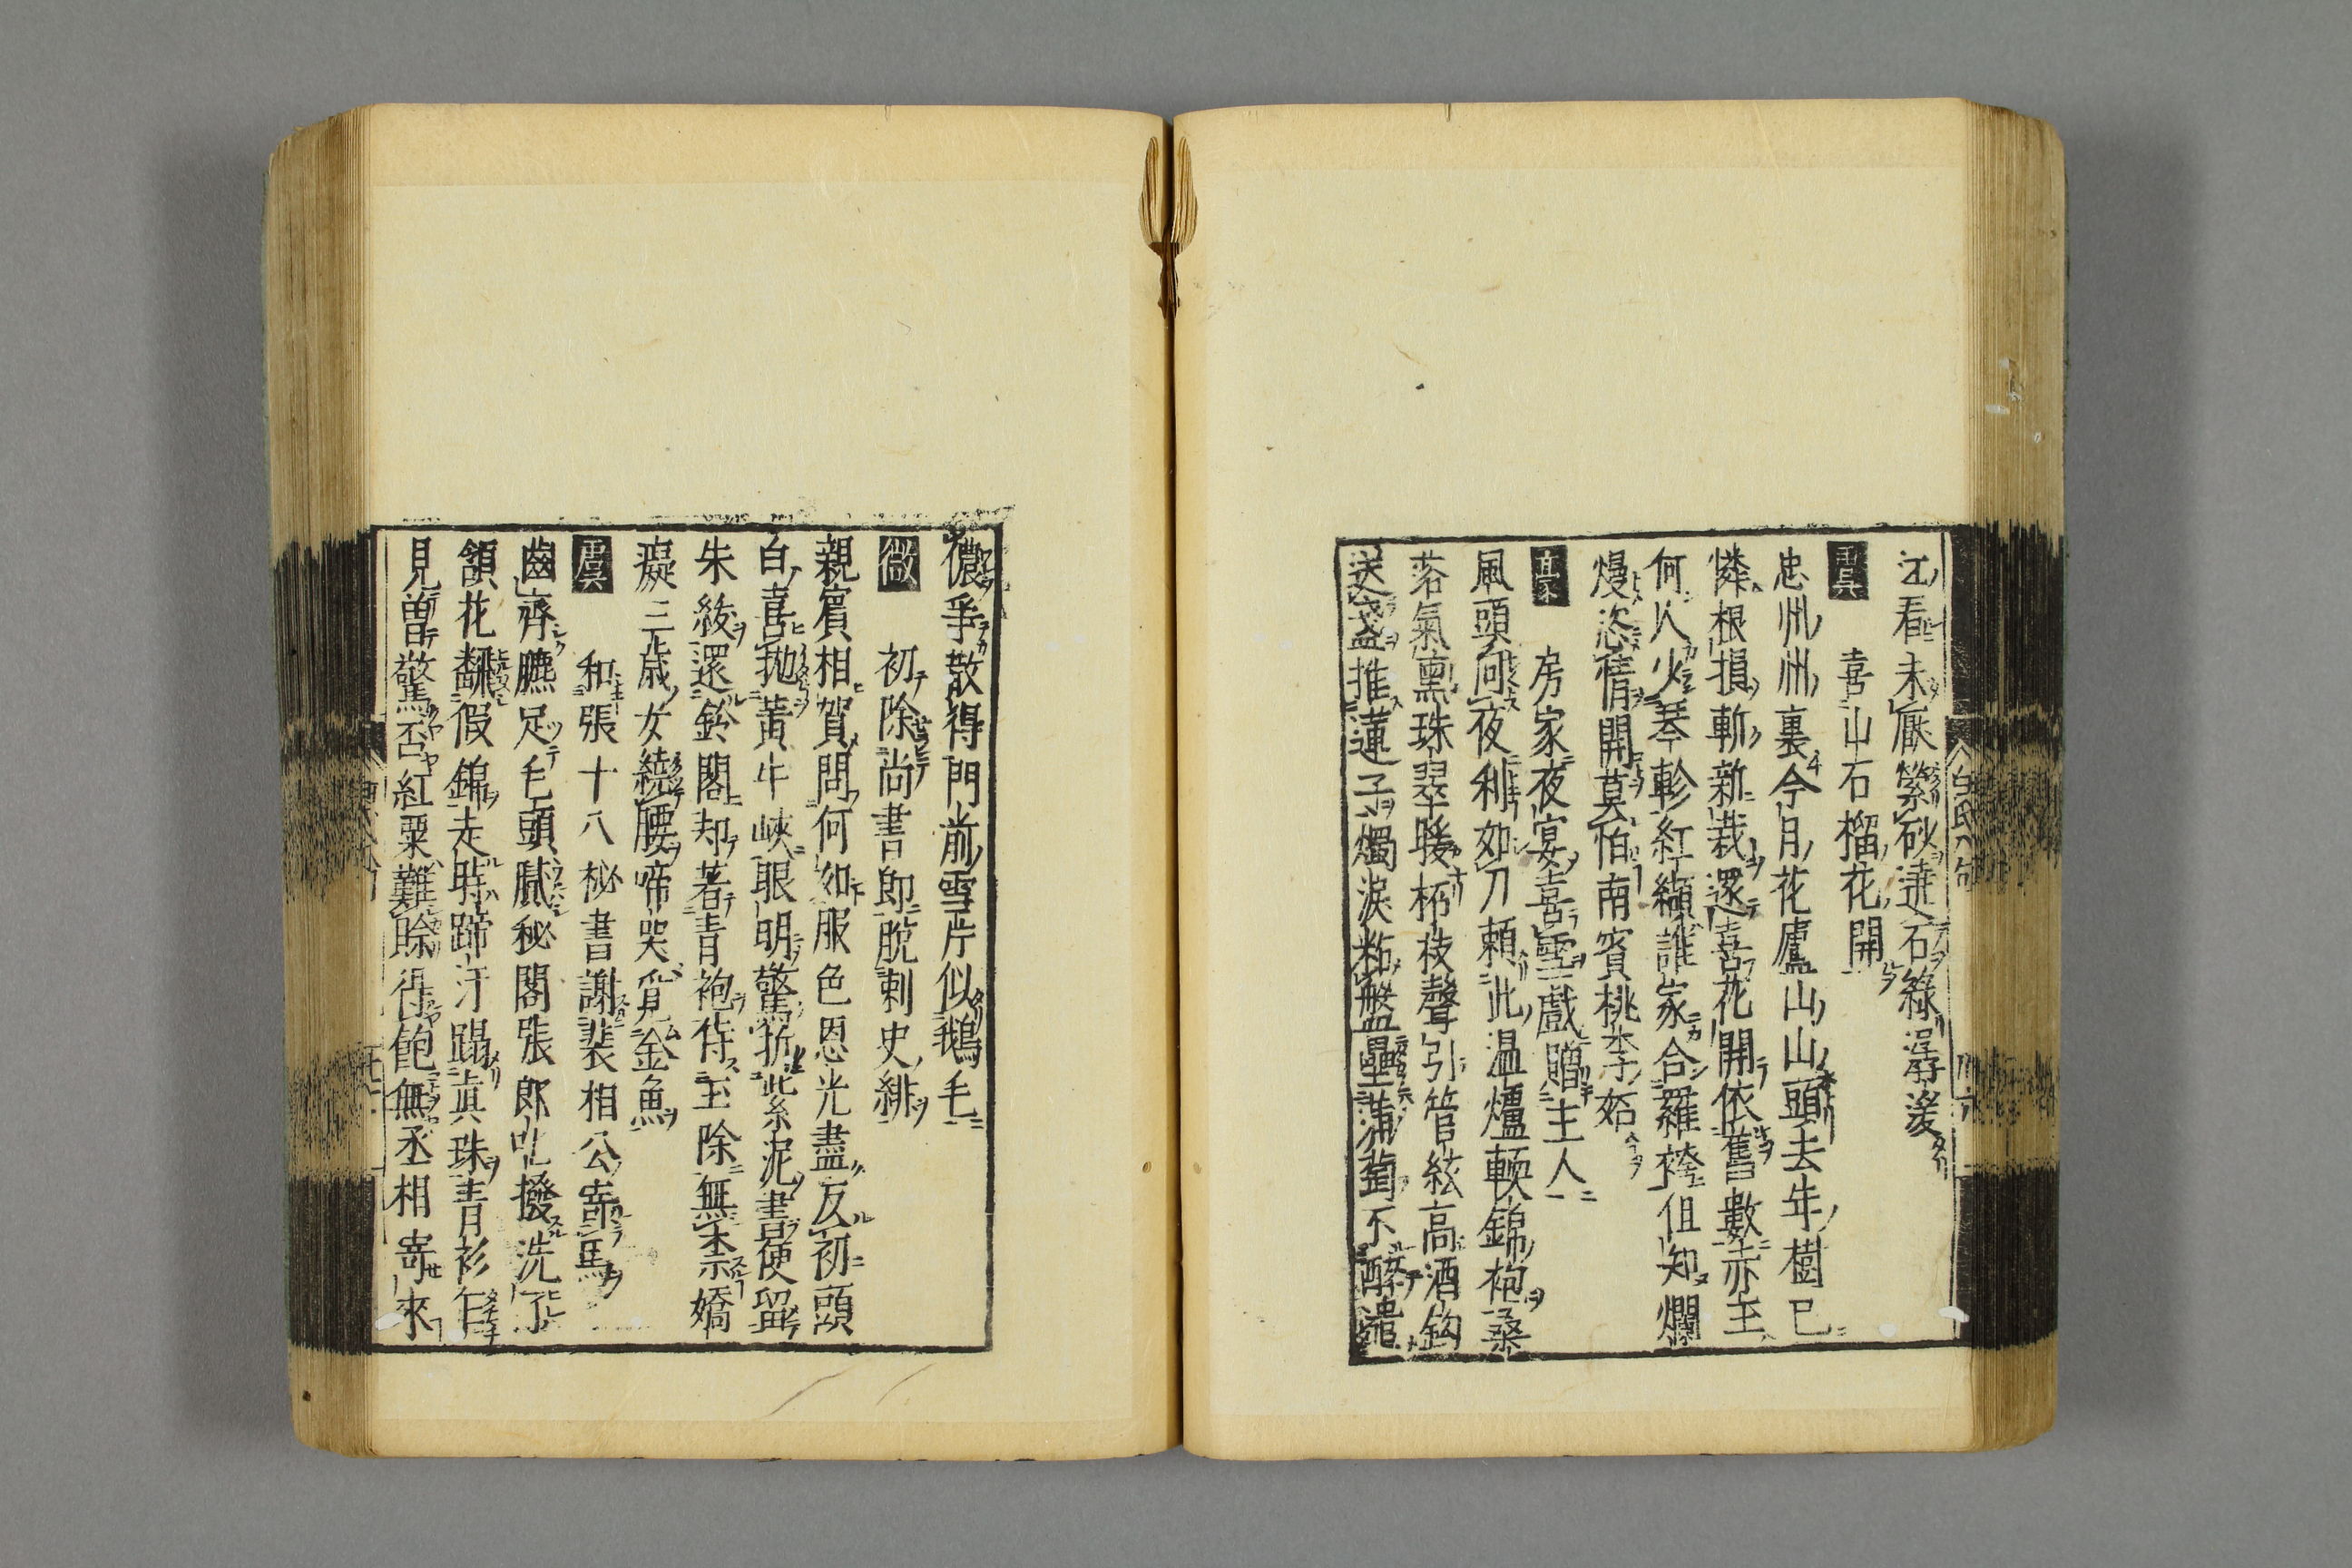 江看未厭縈砂遶石綠潺湲
虞 喜山石榴花開
忠州州裏今月花廬山山頭去年樹已
憐根損斬新栽還喜花開依舊數赤玉
何人火琴軫紅纈誰家合羅袴但知爛
熳恣情開莫怕南賓桃李妬
豪 房家夜宴喜雪戲贈主人
風頭向夜利如刀賴此温爐輭錦袍桑
落氣熏珠翠暖柘枝聲引管絃高酒鈎
送盞推蓮子燭淚粘盤壘蒲萄不醉遣
儂爭散得門前雪片似鵝毛
微 初除尚書郎脫刺史緋
親賓相賀問何如服色恩光盡反初頭
白喜抛黃牛峽眼明驚拆紫泥書便留
朱紱還鈴閣却著青袍侍玉除無奈嬌
癡三歲女繞腰啼哭覓金魚
虞 和張十八秘書謝裴相公寄馬
齒齊臕足毛頭膩秘閣張郎叱撥洗了
頷花飜假錦走時蹄汗蹋眞珠青衫乍
見曽驚否紅粟難賒得飽無丞相寄來